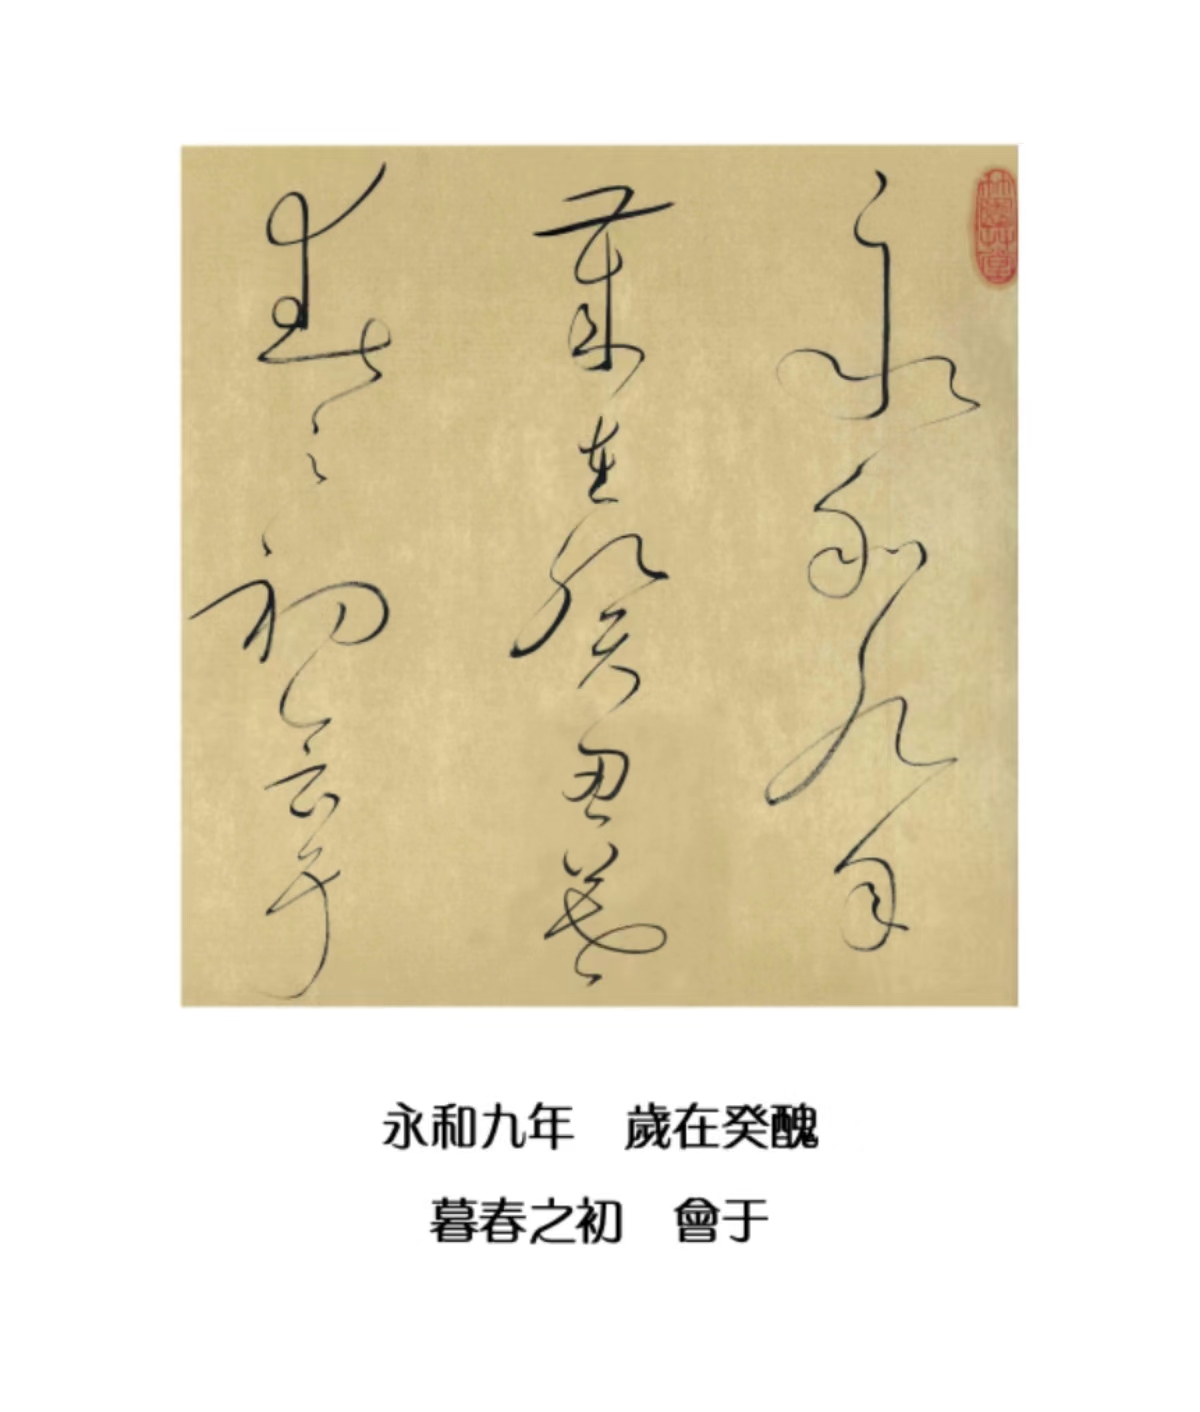 永和九年
歲在癸丑暮
春之初會于
永和九年　歲在癸醜
暮春之初　會于